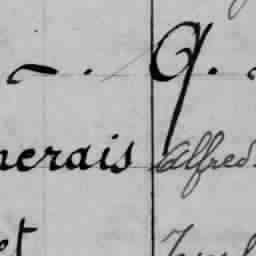 Q.
nerais Alfred
et